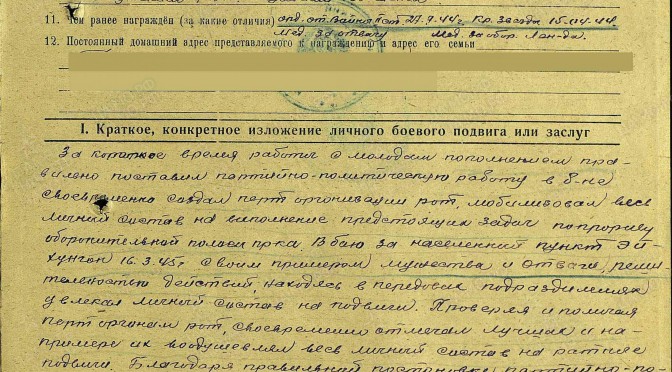 11. Чем ранее награждён (за какие отличия) орд. от. война I ст. 27.9.44г. Кр. Звезды 15.04.44.
Мед. За отвагу Мед. за обор. Лен-да.
12. Постоянный домашний адрес представляемого к награждению и адрес его семьи
I. Краткое, конкретное изложение личного боевого подвига или заслуг
За короткое время работы с молодым пополнением пра-
вильно поставил партийно-политическую работу в б-не
своевременно создал парт организации рот, мобилизовал весь
личный состав на выполнение предстоящих задач по прорыву
оборонительной полосы пр-ка. В бою за населенный пункт Эй-
хунгон 16.3.45г. своим примером мужества и отваги, реши
тельностью действий, находясь в передовых подразделениях
увлекал личный состав на подвиги. Проверяя и помогая
парторганам рот, своевременно отмечал лучших и на-
примере их воодушевлял весь личный состав на ратные
подвиги. Благодаря правильной постановке партийно-по-